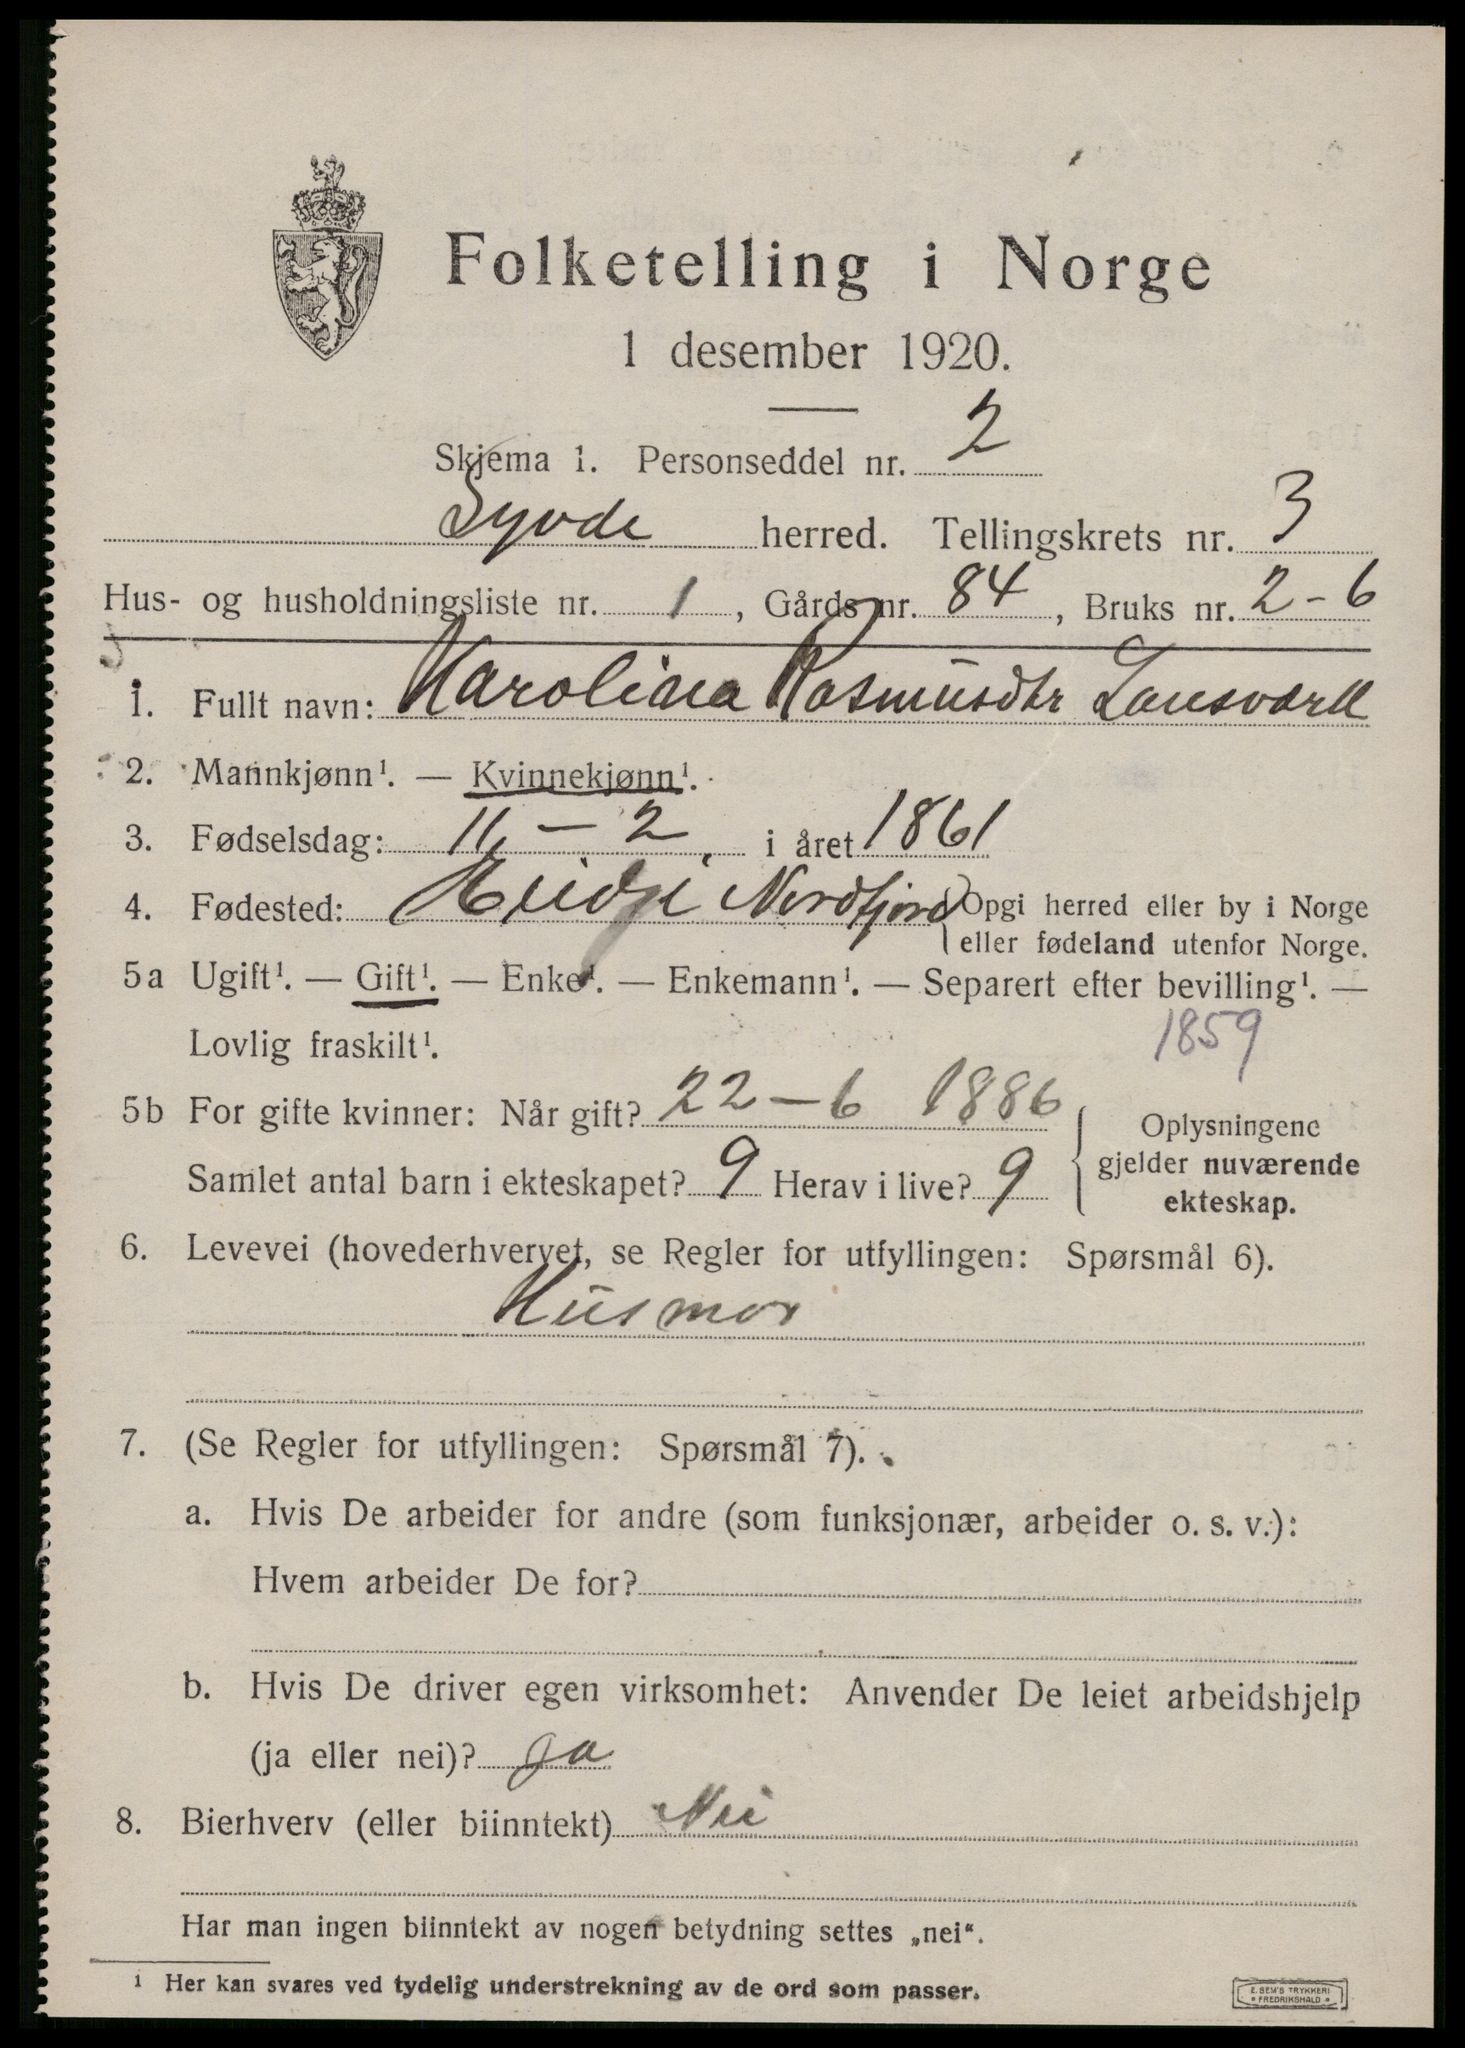 Folketelling i Norge
1 desember 1920.
Skjema 1. Personseddel nr. 2
Syvde herred. Tellingskrets nr. 3
Hus- og husholdningsliste nr. 1, Gårds nr. 84, Bruks nr. 2-6
1. Fullt navn: Karolina Rasmusdtr
2. Mannkjønn¹. — Kvinnekjønn¹.
3. Fødselsdag: 11. – 2. i året 1861
4. Fødested: Nordfjord Opgi herred eller by i Norge
eller fødeland utenfor Norge.
5a Ugift¹. — Gift¹. — Enke¹. — Enkemann¹. — Separert efter bevilling¹. —
Lovlig fraskilt¹.
1859
5b For gifte kvinner: Når gift? 22 – 6 1886
Samlet antal barn i ekteskapet? 9 Herav i live? 9
Oplysningene
gjelder nuværende
ekteskap.
6. Levevei (hovederhvervet, se Regler for utfyllingen: Spørsmål 6).
Husmor
7. (Se Regler for utfyllingen: Spørsmål 7).
a. Hvis De arbeider for andre (som funksjonær, arbeider o. s. v.):
Hvem arbeider De for?
b. Hvis De driver egen virksomhet: Anvender De leiet arbeidshjelp
(ja eller nei)? Ja
8. Bierhverv (eller biinntekt) Nei
Har man ingen biinntekt av nogen betydning settes „nei“.
¹ Her kan svares ved tydelig understrekning av de ord som passer.
E. SEM'S TRYKKERI
• FREDRIKSHALD •